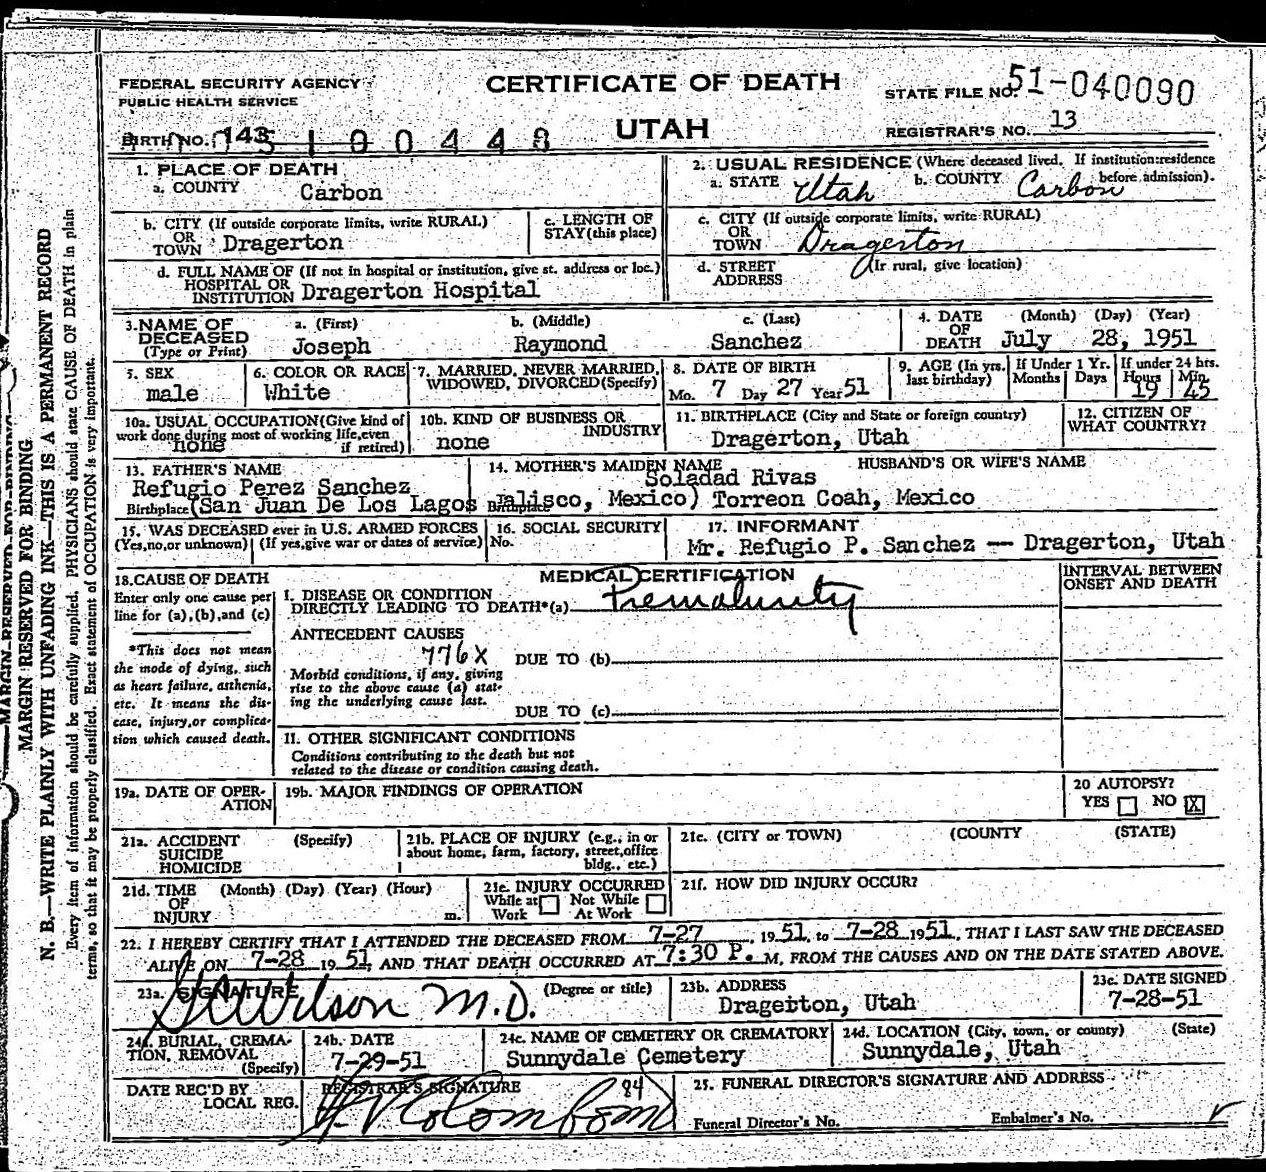 FEDERAL SECURITY AGENCY
PUBLIC HEALTH SERVICE
CERTIFICATE OF DEATH
UTAH
STATE FILE NO. 51-040090
REGISTRAR'S NO. 13
BIRTH NO. 143
1. PLACE OF DEATH
a. COUNTY Carbon
2. USUAL RESIDENCE (Where deceased lived. If institution: residence before admission).
a. STATE Utah b. COUNTY Carbon
b. CITY (If outside corporate limits, write RURAL)
OR
TOWN Dragerton
c. LENGTH OF
STAY (this place)
c. CITY (If outside corporate limits, write RURAL)
OR
TOWN Dragerton
d. FULL NAME OF (If not in hospital or institution, give st. address or loc.)
HOSPITAL OR
INSTITUTION Dragerton Hospital
d. STREET
ADDRESS
(If rural, give location)
3. NAME OF
DECEASED
(Type or Print)
a. (First) Joseph
b. (Middle) Raymond
c. (Last) Sanchez
4. DATE
OF
DEATH
(Month) (Day) (Year)
July 28, 1951
5. SEX
male
6. COLOR OR RACE
White
7. MARRIED, NEVER MARRIED,
WIDOWED, DIVORCED (Specify)
8. DATE OF BIRTH
Mo. 7 Day 27 Year 51
9. AGE (In yrs.
last birthday)
If Under 1 Yr.
Months Days
If under 24 hrs.
Hours Min.
19 45
10a. USUAL OCCUPATION (Give kind of
work done during most of working life, even
if retired)
none
10b. KIND OF BUSINESS OR
INDUSTRY
none
11. BIRTHPLACE (City and State or foreign country)
Dragerton, Utah
12. CITIZEN OF
WHAT COUNTRY?
13. FATHER'S NAME
Refugio Perez Sanchez
14. MOTHER'S MAIDEN NAME
Soladad Rivas
HUSBAND'S OR WIFE'S NAME
Birthplace (San Juan De Los Lagos Jalisco, Mexico) Birthplace Torreon Coah, Mexico
15. WAS DECEASED ever in U.S. ARMED FORCES
(Yes, no, or unknown) (If yes, give war or dates of service)
16. SOCIAL SECURITY
No.
17. INFORMANT
Mr. Refugio P. Sanchez -- Dragerton, Utah
18. CAUSE OF DEATH
Enter only one cause per
line for (a), (b), and (c)
*This does not mean
the mode of dying, such
as heart failure, asthenia,
etc. It means the dis-
ease, injury, or complica-
tion which caused death.
MEDICAL CERTIFICATION
I. DISEASE OR CONDITION
DIRECTLY LEADING TO DEATH*(a) Prematurity
ANTECEDENT CAUSES
776X DUE TO (b)
Morbid conditions, if any, giving
rise to the above cause (a) stat-
ing the underlying cause last.
DUE TO (c)
II. OTHER SIGNIFICANT CONDITIONS
Conditions contributing to the death but not
related to the disease or condition causing death.
INTERVAL BETWEEN
ONSET AND DEATH
19a. DATE OF OPER-
ATION
19b. MAJOR FINDINGS OF OPERATION
20 AUTOPSY?
YES NO X
21a. ACCIDENT
SUICIDE
HOMICIDE
(Specify)
21b. PLACE OF INJURY (e.g., in or
about home, farm, factory, street, office
bldg., etc.)
21c. (CITY or TOWN) (COUNTY (STATE)
21d. TIME
OF
INJURY
(Month) (Day) (Year) (Hour)
m.
21e. INJURY OCCURRED
While at Work Not While At Work
21f. HOW DID INJURY OCCUR?
22. I HEREBY CERTIFY THAT I ATTENDED THE DECEASED FROM 7-27, 1951, to 7-28 1951, THAT I LAST SAW THE DECEASED
ALIVE ON 7-28 1951, AND THAT DEATH OCCURRED AT 7:30 P. M, FROM THE CAUSES AND ON THE DATE STATED ABOVE.
23a. SIGNATURE (Degree or title)
Wilson M.D.
23b. ADDRESS
Dragerton, Utah
23c. DATE SIGNED
7-28-51
24a. BURIAL, CREMA-
TION, REMOVAL
(Specify)
24b. DATE
7-29-51
24c. NAME OF CEMETERY OR CREMATORY
Sunnydale Cemetery
24d. LOCATION (City, town, or county) (State)
Sunnydale, Utah
DATE REC'D BY
LOCAL REG.
REGISTRAR'S SIGNATURE
84
25. FUNERAL DIRECTOR'S SIGNATURE AND ADDRESS
Funeral Director's No. Embalmer's No.
MARGIN RESERVED FOR BINDING
MARGIN RESERVED FOR BINDING
N. B.—WRITE PLAINLY WITH UNFADING INK—THIS IS A PERMANENT RECORD
Every item of information should be carefully supplied. PHYSICIANS should state CAUSE OF DEATH in plain
terms, so that it may be properly classified. Exact statement of OCCUPATION is very important.